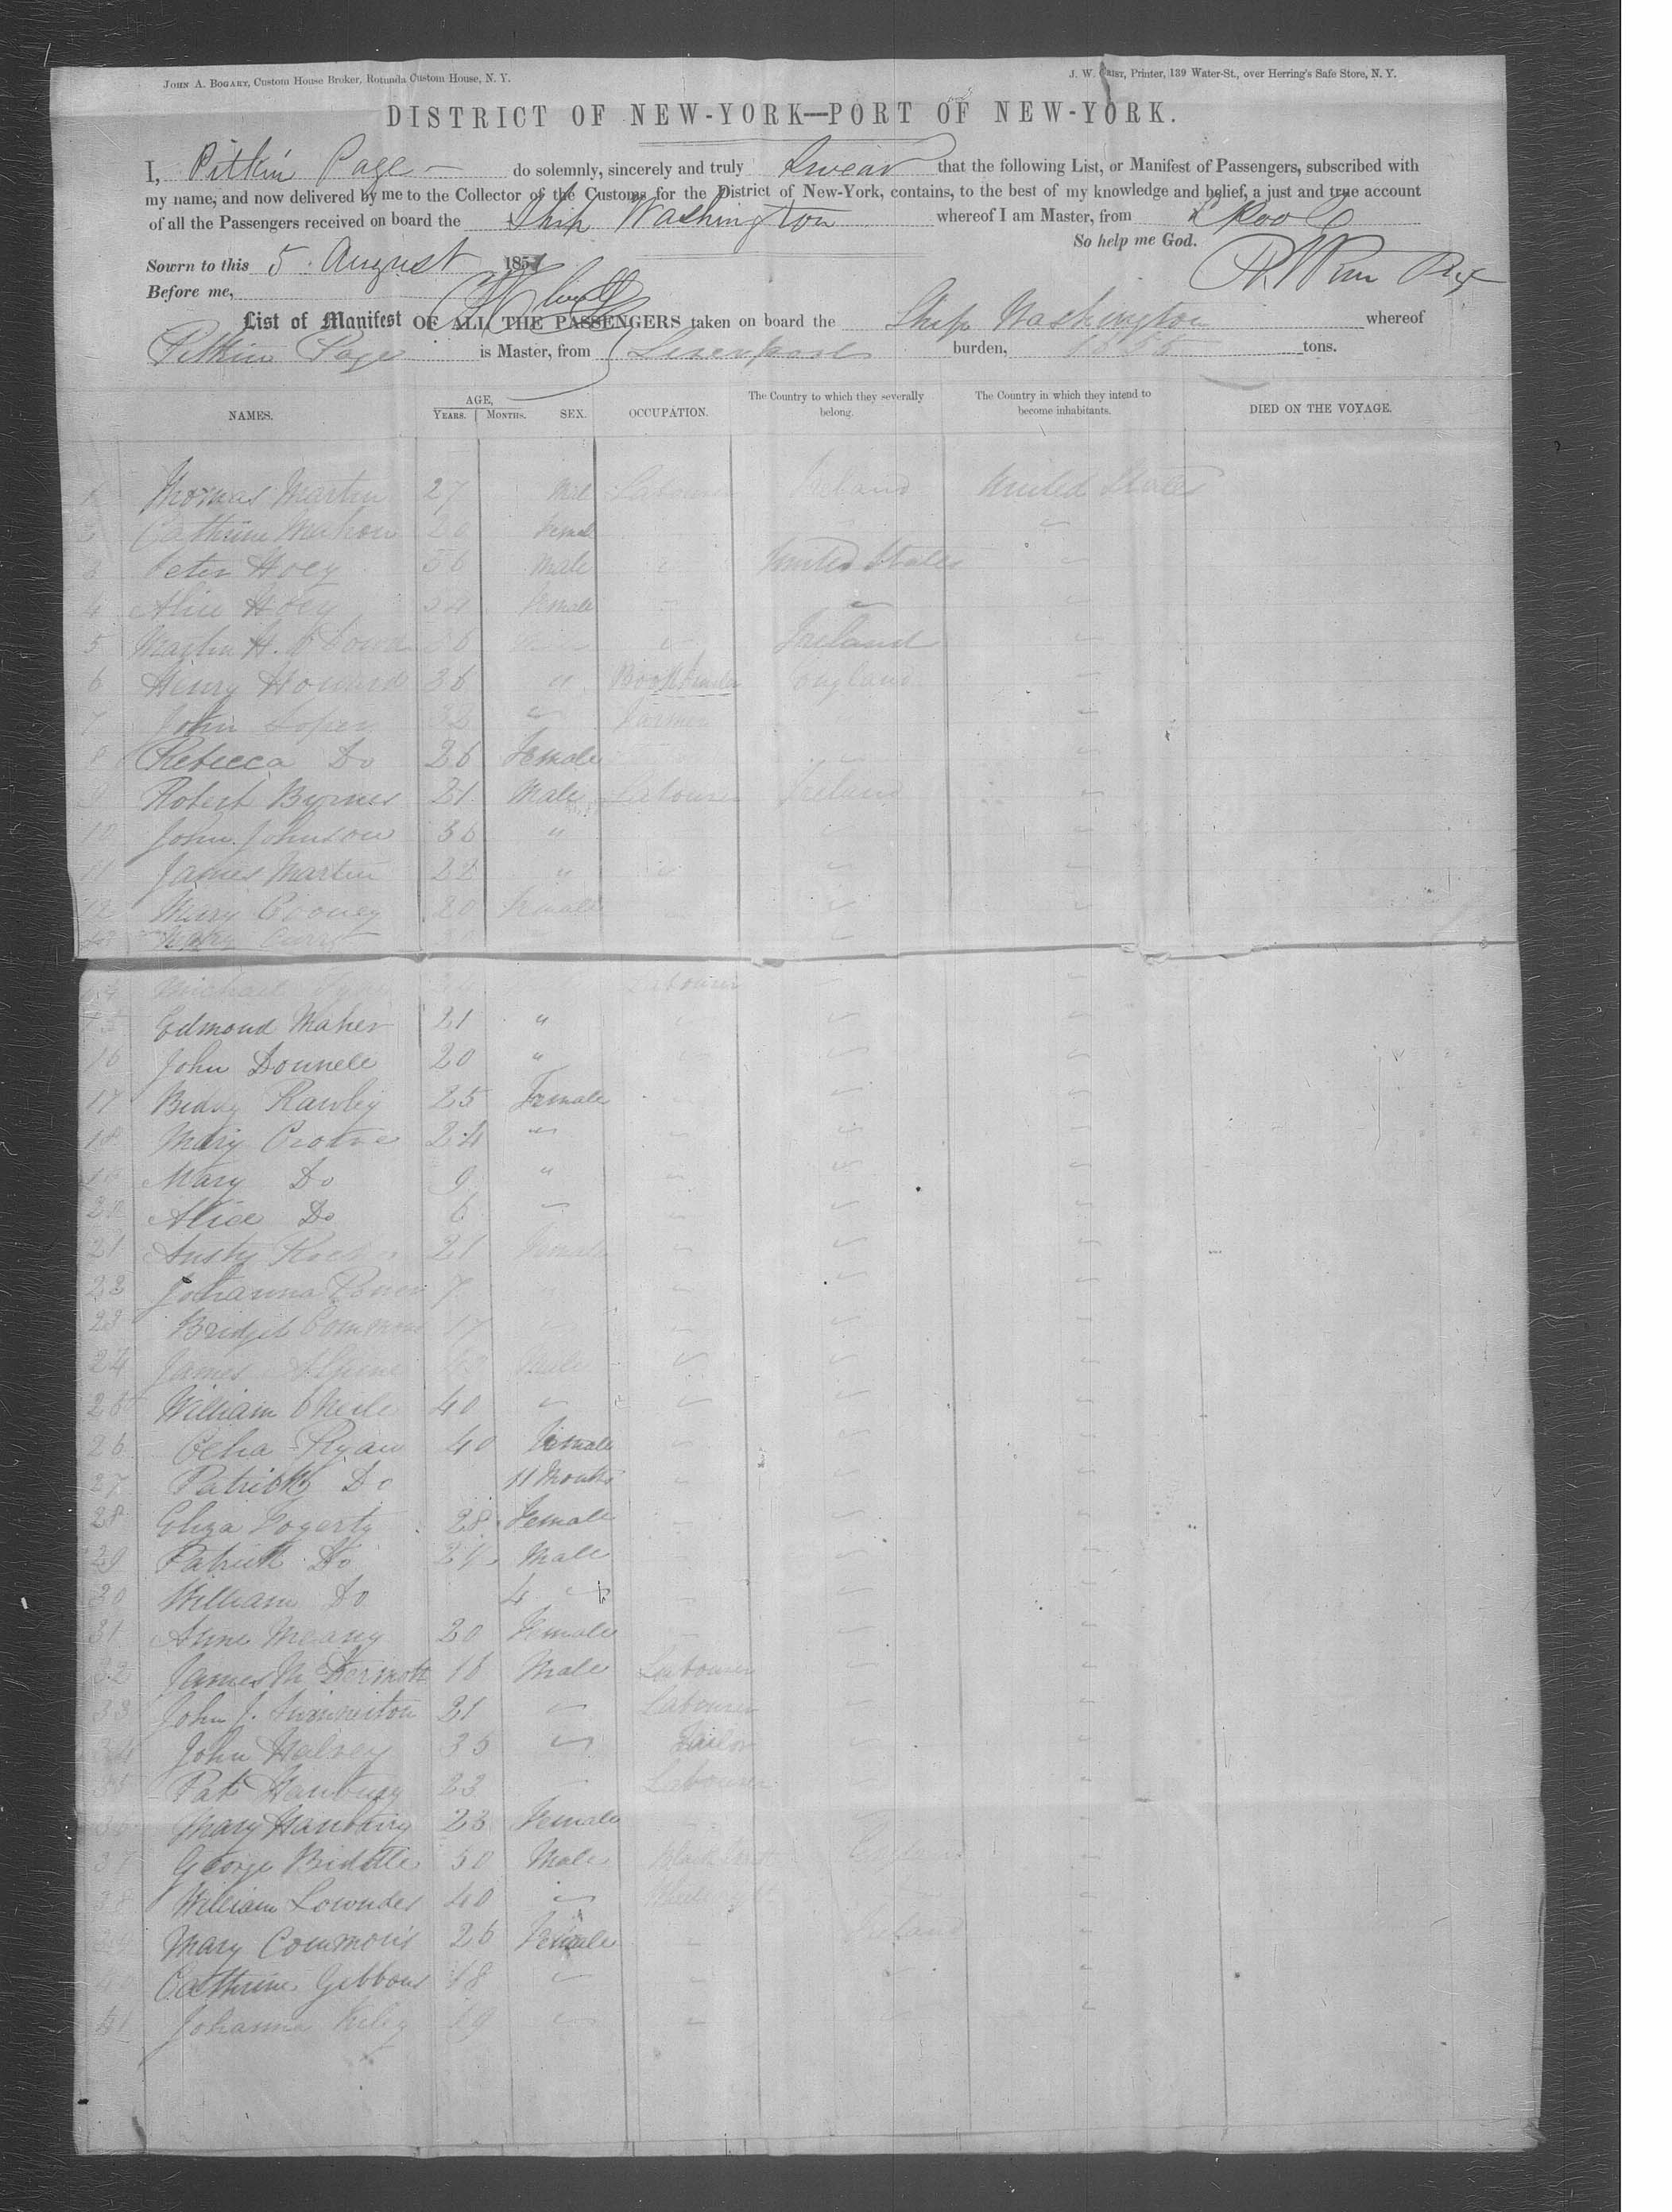 JOHN A. BOGART, Custom House Broker, Rotunda Custom House, N. Y.
J. W. CRIST, Printer, 139 Water-St., over Herring's Safe Store, N. Y.
DISTRICT OF NEW-YORK—PORT OF NEW-YORK.
I, Pitkin Page do solemnly, sincerely and truly Swear that the following List, or Manifest of Passengers, subscribed with
my name, and now delivered by me to the Collector of the Customs for the District of New-York, contains, to the best of my knowledge and belief, a just and true account
of all the Passengers received on board the Ship Washington whereof I am Master, from L'pool
So help me God.
Sowrn to this 5 August 1851
Before me,
List of Manifest OF ALL THE PASSENGERS taken on board the Ship Washington whereof
Pitkin Page is Master, from Liverpool burden, 1655 tons.
NAMES. AGE, YEARS. MONTHS. SEX. OCCUPATION. The Country to which they severally belong. The Country in which they intend to become inhabitants. DIED ON THE VOYAGE.
1 Thomas Martin 27 Male Labourer Ireland United States
2 Cathrine Mahon 20 Female
3 Peter Hoey 36 Male " United States "
4 Alice Hoey Female " "
5 Martin H. Ireland "
6 Henry Howard 36 " Bookbinder England "
7 John 32 " Farmer "
8 Rebecca Do 26 Female " "
9 Robert Byrnes 21 Male Labourer Ireland "
10 John Johnson 36 " " "
11 James Martin 22 " " " "
12 Mary Cooney 20 Female " " "
13 Mary
14 Michael Labourer " "
15 Edmond Maher 21 " " " "
16 John Donnell 20 " " " "
17 Biddy Rawley 25 Female " " "
18 Mary 24 " " " "
19 Mary Do 9 " " " "
20 Alice Do 6 " " " "
21 21 Female " " "
22 Johanna Power 7 " " "
23 Bridget Commons 17 " " " "
24 James Male " " "
25 William O'Neile 40 " " " "
26 Celia Ryan 40 Female " " "
27 Patrick Do 11 Months " " "
28 Eliza Fogarty 28 Female " " "
29 Patrick Do Male " "
30 William Do 4 " " " "
31 Anne Meany 20 Female " " "
32 James McDermott 16 Male Labourer " "
33 John J. 21 " Labourer " "
34 John Halvey 35 " Tailor " "
35 Pat Hanbury 23 " Labourer " "
36 Mary Hanbury 23 Female " " "
37 George Biddle 50 Male England "
38 William Lowndes 40 " "
39 Mary Commons 26 Female " Ireland "
40 Cathrine Gibbons 18 " " " "
41 Johanna 19 " " "